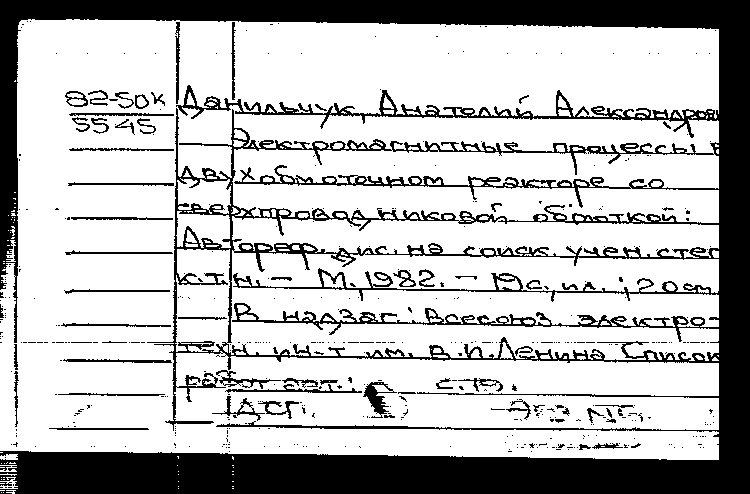 82-50к
5545
Данильчук, Анатолий Александрови
Электромагнитные процессы в
двухобмоточном реакторе со
сверхпроводниковой обмоткой:
Автореф. дис. на соиск. учен. степ
к.т.н. – М., 1982. – 19с., ил. ; 20 см.
В надзаг.: Всесоюз. электро-
техн. ин-т им. В.И. Ленина Список
работ авт.: с. 19.
ДСП.